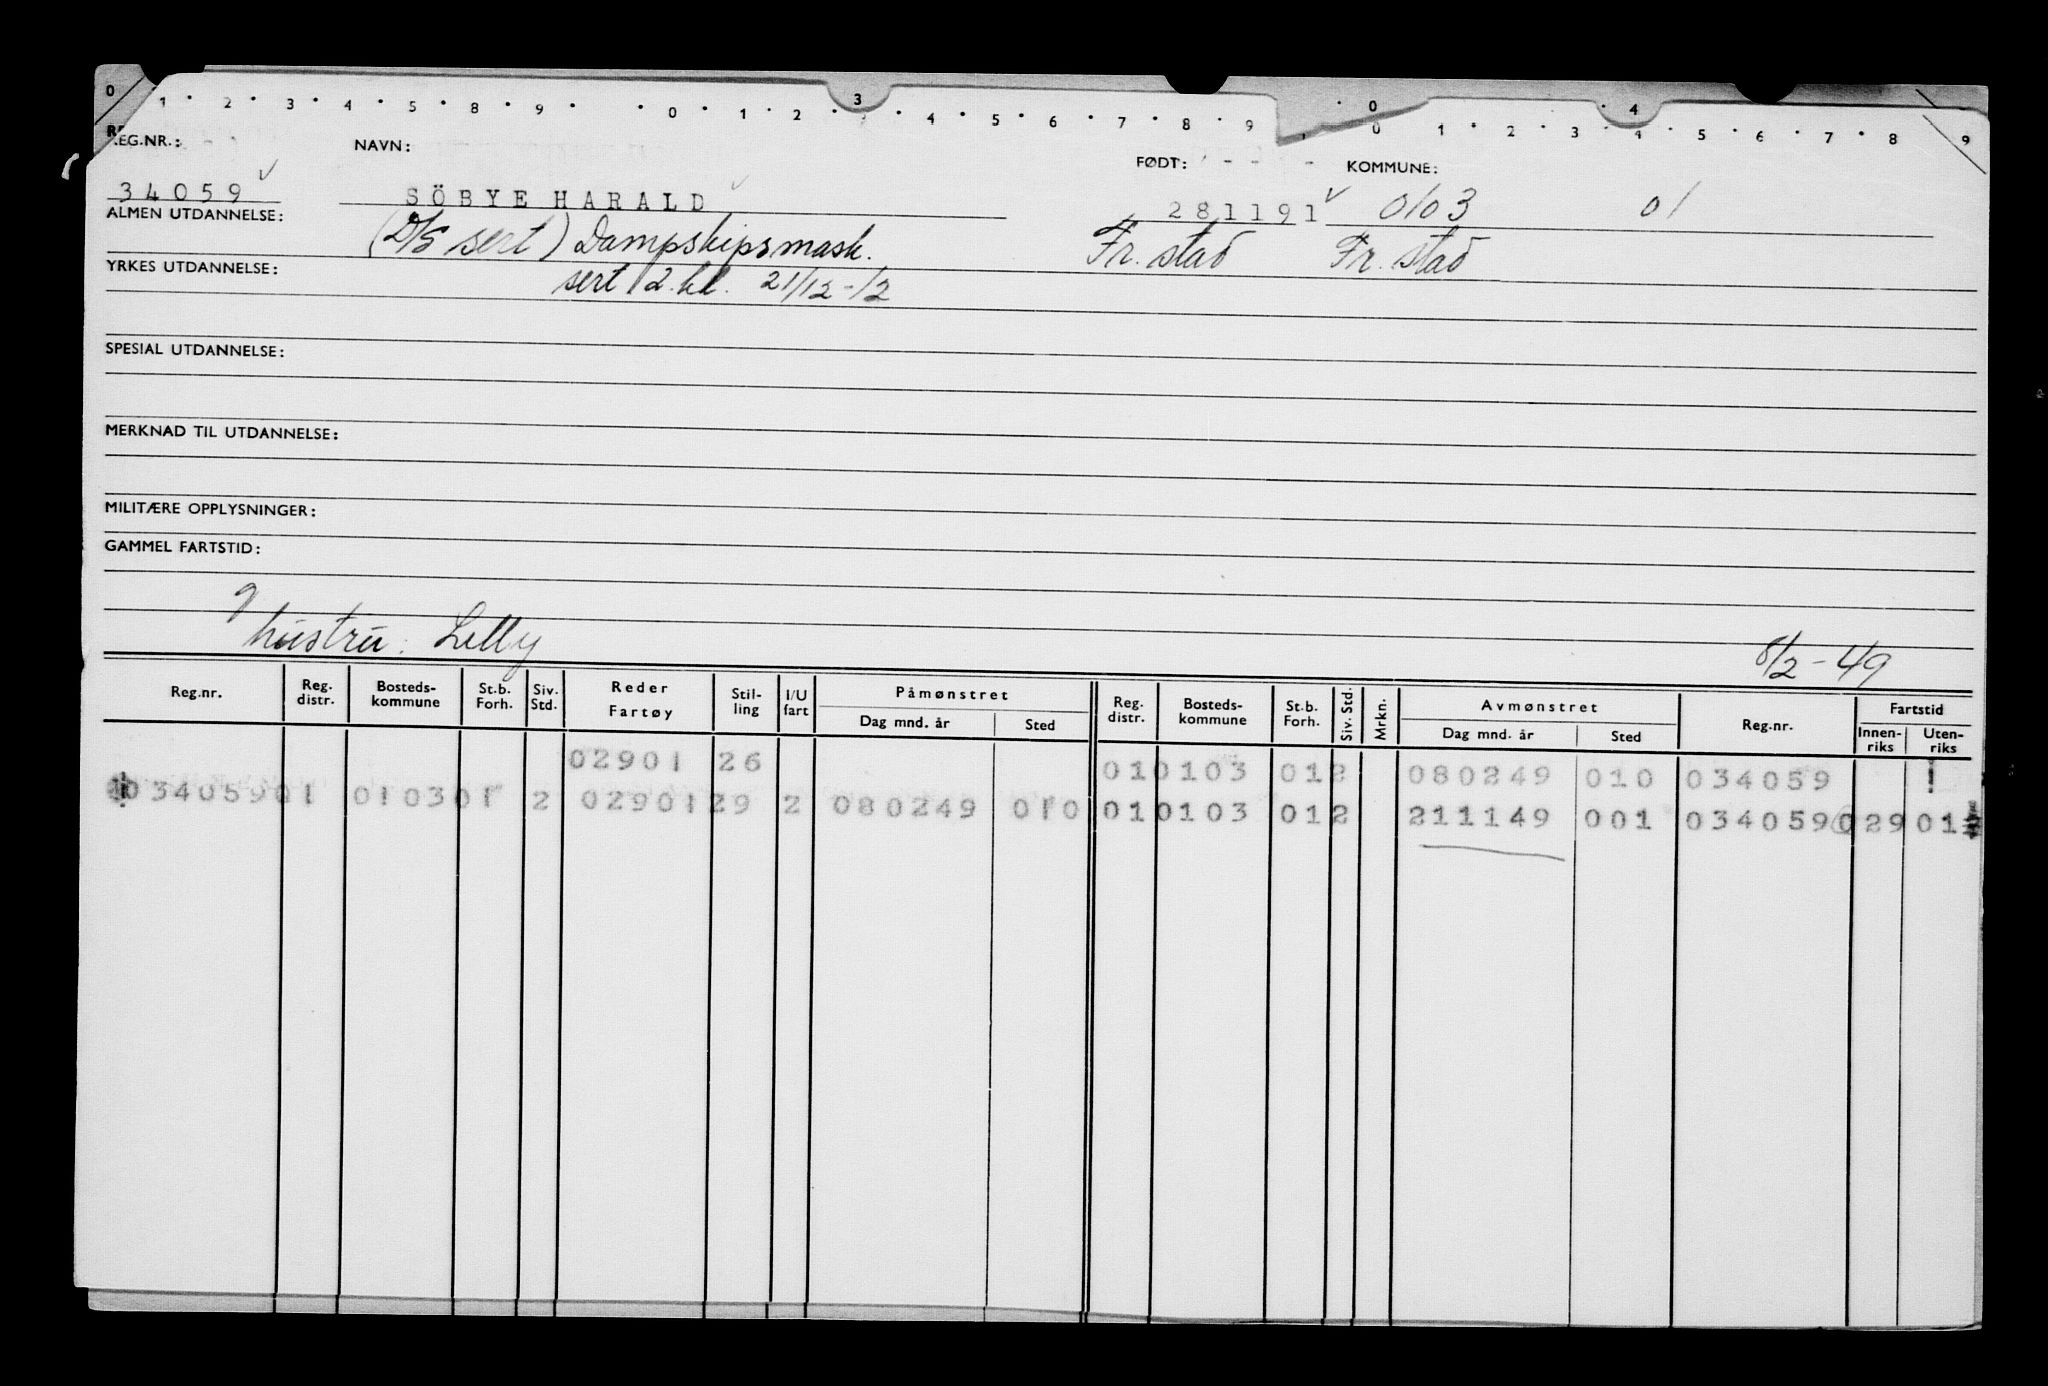 0 1 2 3 4 5 8 9 0 1 2 3 4 5 6 7 8 9 0 0 1 2 3 4 4 5 6 7 8 9
REG.NR.: NAVN: FØDT: KOMMUNE:
34059 SÖBYE HARALD 281191 0103 01
ALMEN UTDANNELSE: (D/S sert) Dampskipsmask. Fr.stad Fr.stad
YRKES UTDANNELSE: sert 2.kl. 21/12-12
SPESIAL UTDANNELSE:
MERKNAD TIL UTDANNELSE:
MILITÆRE OPPLYSNINGER:
GAMMEL FARTSTID:
g
hustru: Lilly 8/2-49
Reg.nr. Reg. distr. Bosteds-kommune St.b. Forh. Siv. Std. Reder Fartøy Stil-ling I/U fart Påmønstret Dag mnd. år Sted Reg. distr. Bosteds-kommune St.b. Forh. Siv. Std. Mrkn. Avmønstret Dag mnd. år Sted Reg.nr. Fartstid Innen-riks Uten-riks
02901 26 01 0103 01 2 080249 010 034059 !
034059 01 0103 01 2 02901 29 2 080249 010 01 0103 01 2 211149 001 034059 029 01